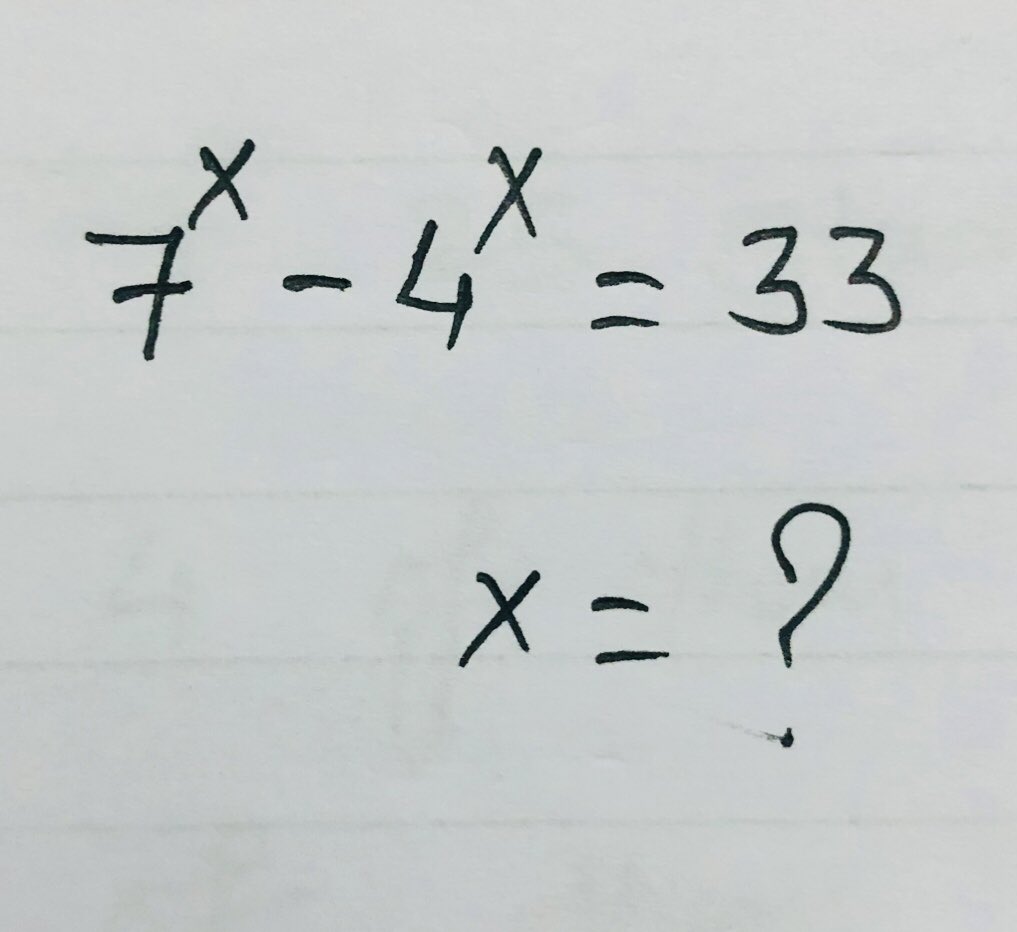 7ˣ - 4ˣ = 33
x = ?